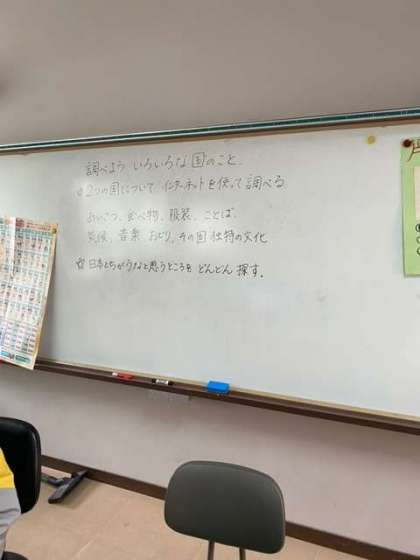 調べよう いろいろな国のこと。
◎2つの国について インターネットを使って調べる
あいさつ、食べ物、服装、ことば、
気候、音楽、おどり、その国独特の文化
☆ 日本とちがうなと思うところを どんどん 探す。